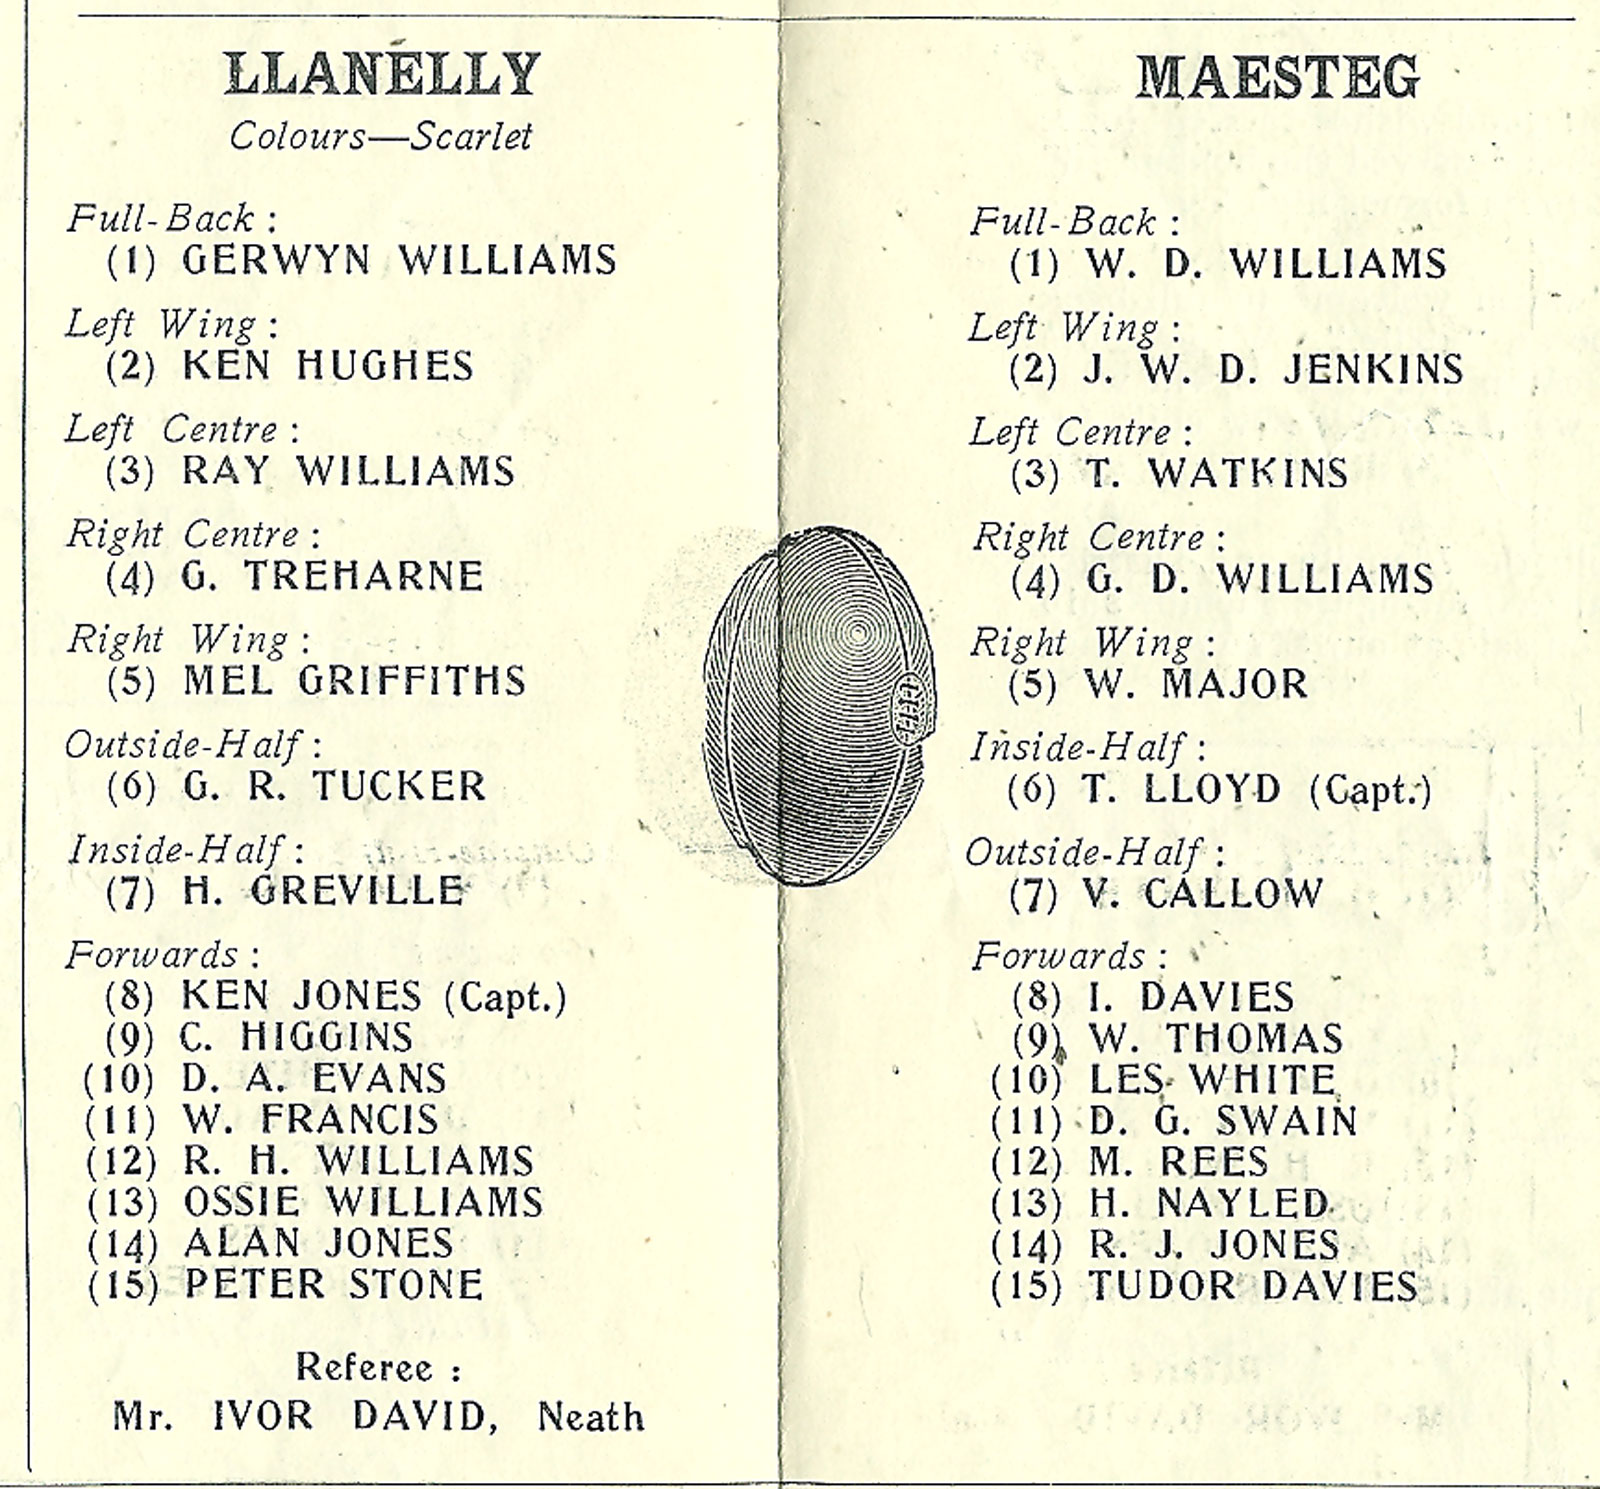 LLANELLY
Colours—Scarlet
Full-Back :
(1) GERWYN WILLIAMS
Left Wing :
(2) KEN HUGHES
Left Centre :
(3) RAY WILLIAMS
Right Centre :
(4) G. TREHARNE
Right Wing :
(5) MEL GRIFFITHS
Outside-Half :
(6) G. R. TUCKER
Inside-Half :
(7) H. GREVILLE
Forwards :
(8) KEN JONES (Capt.)
(9) C. HIGGINS
(10) D. A. EVANS
(11) W. FRANCIS
(12) R. H. WILLIAMS
(13) OSSIE WILLIAMS
(14) ALAN JONES
(15) PETER STONE
Referee :
Mr. IVOR DAVID, Neath
MAESTEG
Full-Back :
(1) W. D. WILLIAMS
Left Wing :
(2) J. W. D. JENKINS
Left Centre :
(3) T. WATKINS
Right Centre :
(4) G. D. WILLIAMS
Right Wing :
(5) W. MAJOR
Inside-Half :
(6) T. LLOYD (Capt.)
Outside-Half :
(7) V. CALLOW
Forwards :
(8) I. DAVIES
(9) W. THOMAS
(10) LES WHITE
(11) D. G. SWAIN
(12) M. REES
(13) H. NAYLED
(14) R. J. JONES
(15) TUDOR DAVIES